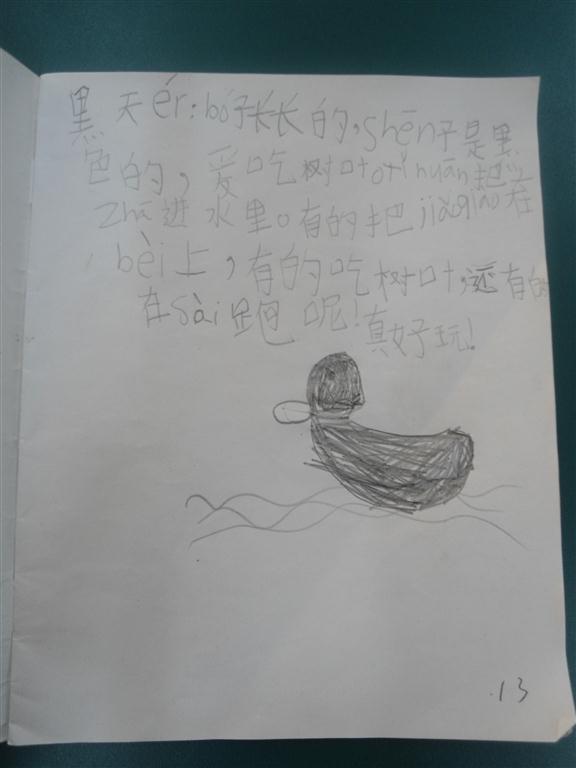 黑天ér:bó子长长的,shēn子是黑
色的,爱吃树叶。tǐ nuǎn把
zhā进水里。有的把jiǎo qiào在
bèi上,有的吃树叶,还有的
在sài跑呢!真好玩!
13